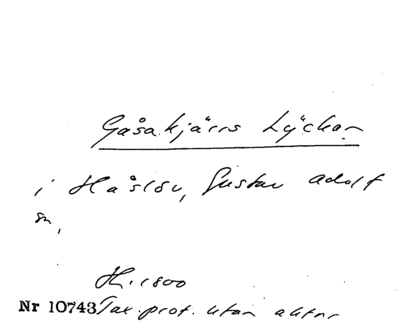 Gåsakjärrs Lyckan
i Håslöv, Gustav Adolf
sn,
H. 1800
Nr 10743 Tax. prot. utan aktnr